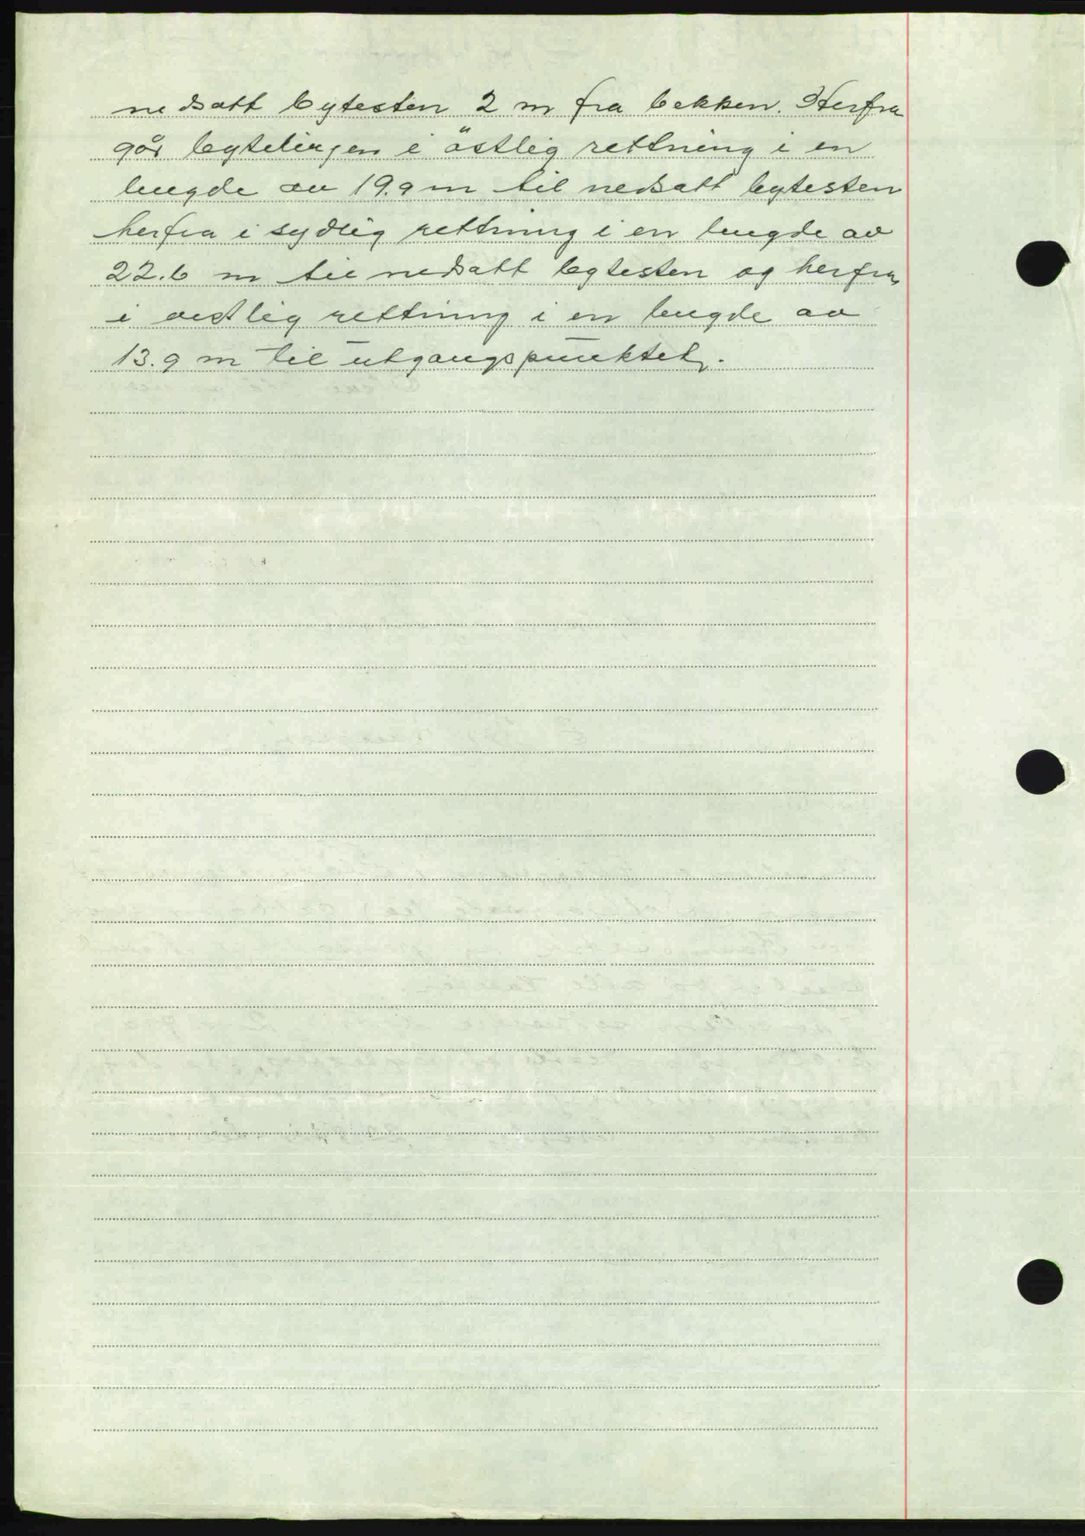 nedsatt bytesten 2 m fra bekken. Herfra
går bytelinjen i östlig rettning i en
lengde av 19.9 m til nedsatt bytesten
herfra i sydlig rettning i en lengde av
22.6 m til nedsatt bytesten og herfra
i vestlig rettning i en lengde av
13.9 m til utgangspunktet.